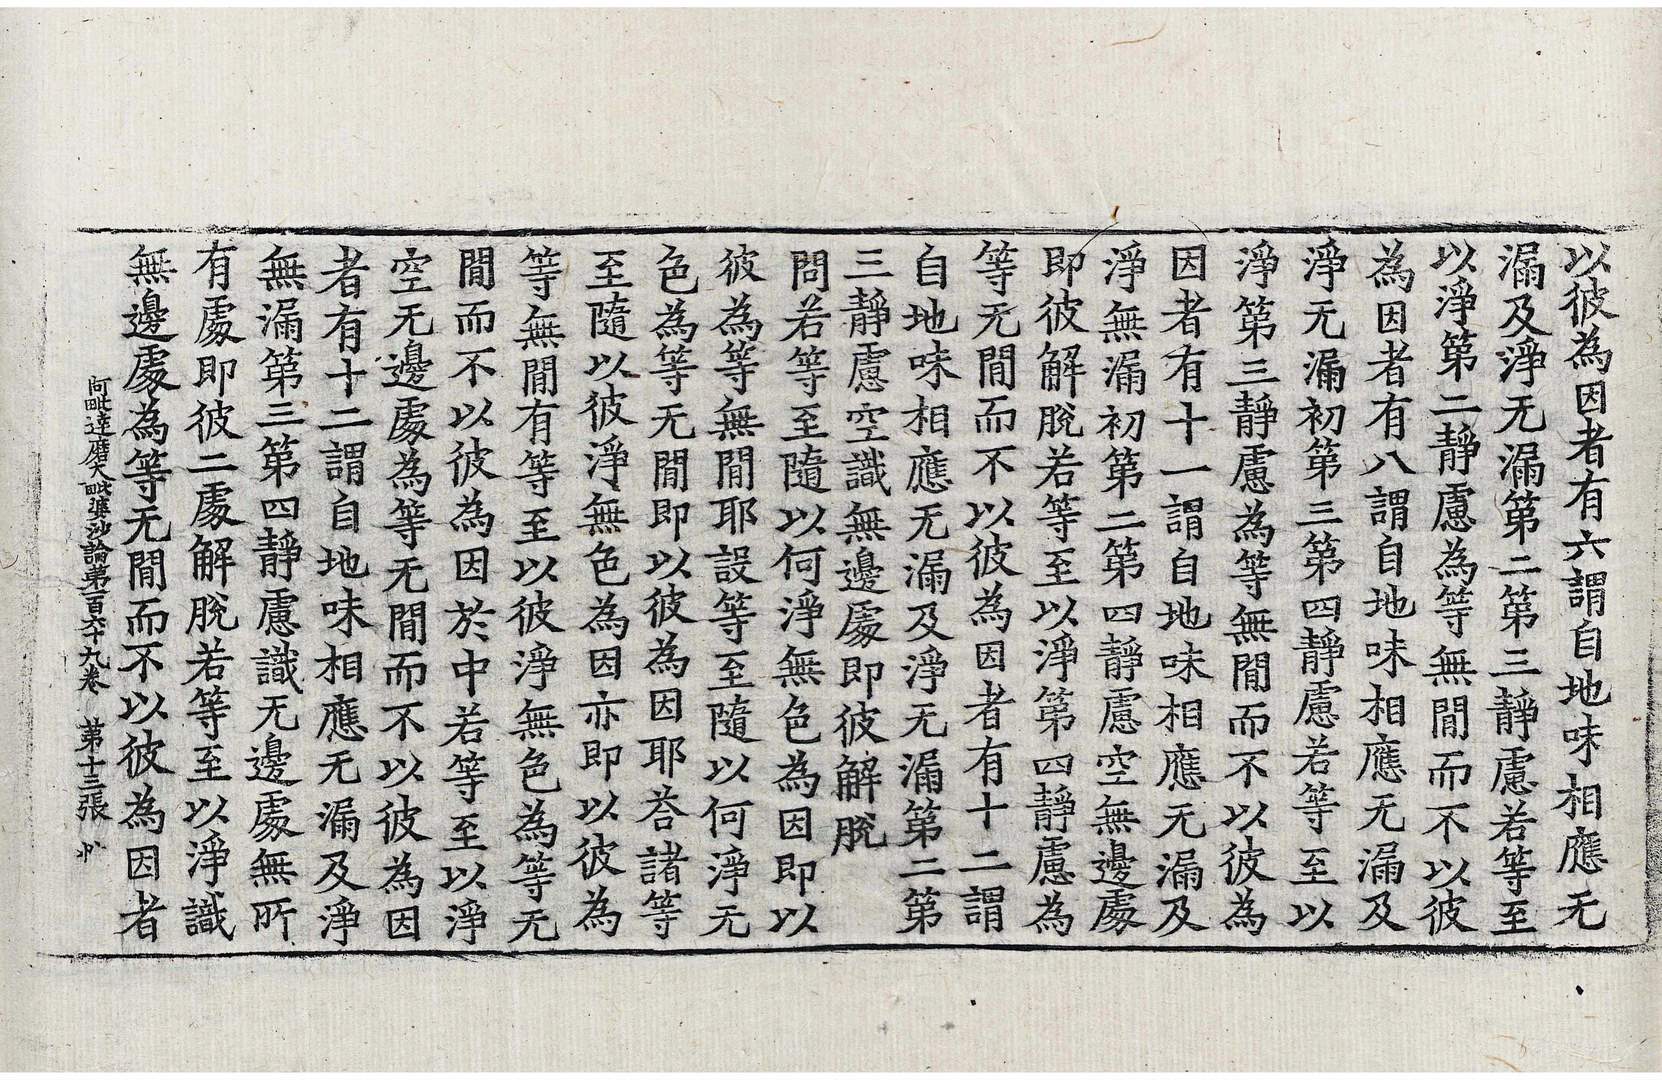 以彼為因者有六謂自地味相應无
漏及淨无漏第二第三靜慮若等至
以淨第二靜慮為等無間而不以彼
為因者有八謂自地味相應无漏及
淨无漏初第三第四靜慮若等至以
淨第三靜慮為等無間而不以彼為
因者有十一謂自地味相應无漏及
淨無漏初第二第四靜慮空無邊處
即彼解脫若等至以淨第四靜慮為
等无間而不以彼為因者有十二謂
自地味相應无漏及淨无漏第二第
三靜慮空識無邊處即彼解脫
問若等至隨以何淨無色為因即以
彼為等無間耶設等至隨以何淨无
色為等无間即以彼為因耶荅諸等
至隨以彼淨無色為因亦即以彼為
等無間有等至以彼淨無色為等无
間而不以彼為因於中若等至以淨
空无邊處為等无間而不以彼為因
者有十二謂自地味相應无漏及淨
無漏第三第四靜慮識无邊處無所
有處即彼二處解脫若等至以淨識
無邊處為等无間而不以彼為因者
阿毗達磨大毗婆沙論第一百六十九卷 第十三張